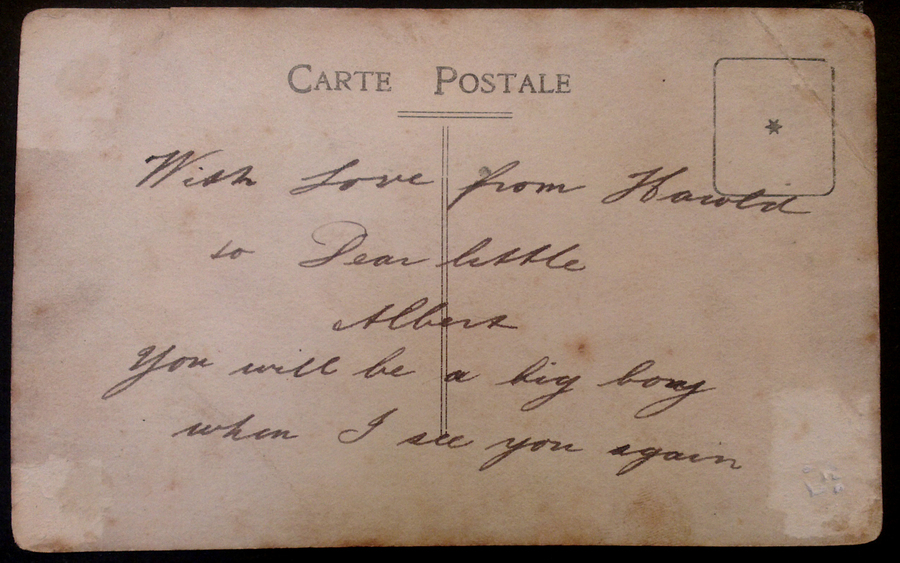 CARTE POSTALE
With Love from Harold
to Dear little
Albert
You will be a big boy
when I see you again